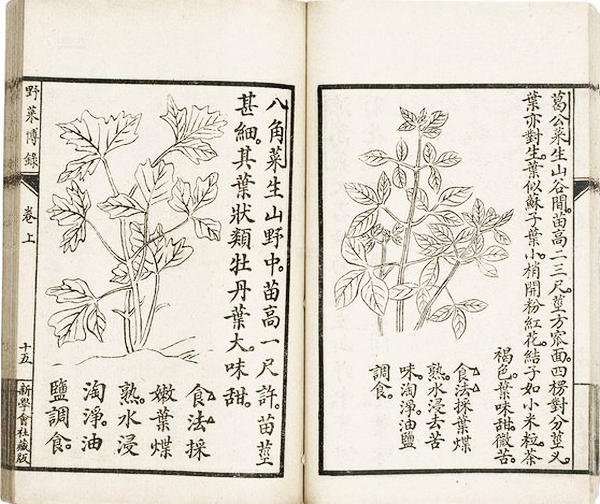 葛公菜生山谷間。苗高二三尺。莖方窊面四楞對分莖叉。
葉亦對生。葉似蘇子葉小。梢開粉紅花。結子如小米粒。茶
褐色。葉味甜微苦。
食法採葉煠
熟水浸去苦
味淘淨。油鹽
調食。
八角菜生山野中。苗高一尺許。苗莖
甚細。其葉狀類牡丹葉大。味甜。
食法採
嫩葉煠
熟水浸
淘淨。油
鹽調食。
野菜博錄
卷上
十五
新學會社藏版